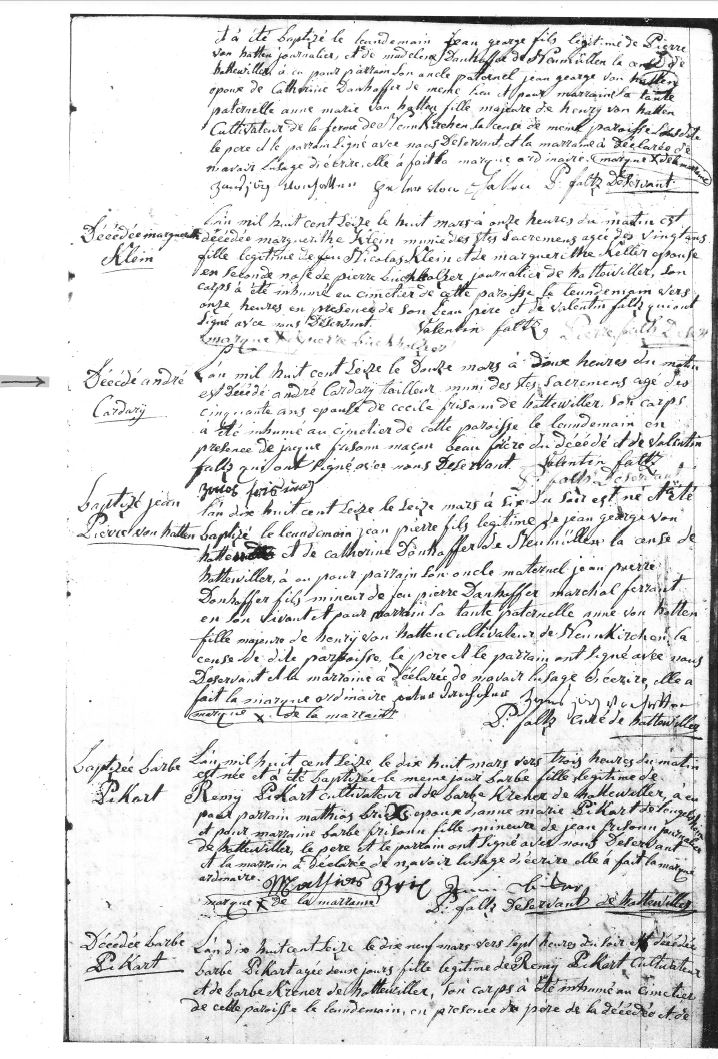 et à été baptizé le leundemain Jean george fils legitime de Pierre
von hatten journalier, et de madeleine Danhoffer de Neumüllen la cense de
hattewiller à eu pour parrain son oncle paternel jean george von hatten
epoux de Catherine Danhoffer de meme lieu et pour marraine la tante
paternelle anne marie von hatten fille majeure de henry von hatten
Cultivateur de la ferme de Neunkirchen la cense de meme paroisse
le pere et le parrain signé avec nous Deservant, et la marraine à déclarée de
n'avoir l'usage d'écrire, elle à fait la marque ordinaire. marque x de la marraine
P. faltz Deservant
Décédée marguerithe
Klein
L'an mil huit cent seize le huit mars à onze heures du matin est
décédée marguerithe Klein munie des stes Sacremens agée des vingt ans
fille legitime de feu Nicolas Klein et de marguerithe Keller epouse
en seconde nose de pierre buchholzer journalier de hattewiller, son
corps à été inhumé au cimetier de cette paroisse le leundemain vers
onze heures en presence de son beau pere et de valentin faltz qui ont
signé avec nous Deservant.
Valentin faltz
marque x
Décédé andré
Cardary
L'an mil huit cent seize le Douze mars à deux heures du matin
est décédé andré Cardary tailleur muni des stes Sacremens age des
cinquante ans epoux de cecile frisonn de hattewiller. son corps
à été inhumé au cimetier de cette paroisse le leundemain en
presence de jaque frisonn maçon beau frere du décédé et de valentin
faltz qui ont signé avec nous Deservant. Valentin faltz
P. faltz Deservant
baptizé jean
Pierre von hatten
L'an dix huit cent seize le seize mars à six du soir est né et à été
baptizé le leundemain jean pierre fils legitime de jean george von
hatten et de catherine Danhoffer de Neumüllen la cense de
hattewiller, à eu pour parrain son oncle maternel jean pierre
Danhoffer fils mineur de feu pierre Danhoffer marchal ferrant
en son vivant et pour marrain la tante paternelle anne von hatten
fille majeure de henry von hatten Cultivateur de Neunkirchen la
cense de dite paroisse, le père et le parrain ont signé avec nous
Deservant et la marraine à déclarée de n'avoir l'usage d'écrire, elle a
fait la marque ordinaire
marque x de la marraine
P. faltz curé de hattewiller
baptizée barbe
Pikart
L'an mil huit cent seize le dix huit mars vers trois heures du matin
est née et à été baptizée le meme jour barbe fille legitime de
Remy Pikart Cultivateur et de barbe Krener de hattewiller, à eu
pour parrain mathias brix epoux d'anne marie Pikart de
et pour marraine barbe frisonn fille mineure de jean frisonn journalier
de hattewiller, le pere et le parrain ont signé avec nous Deservant
et la marrain à déclarée de n'avoir l'usage d'écrire elle à fait la marque
ordinaire. Mathias Brix
marque x de la marraine
P. faltz Deservant de hattewiller
Décédée barbe
Pikart
L'an dix huit cent seize le dix neuf mars vers sept heures du soir est décédée
barbe Pikart agée deux jours fille legitime de Remy Pikart Cultivateur
et de barbe Krener de hattewiller, son corps à été inhumé au cimetier
de cette paroisse le leundemain, en presence de pere de la décédée et de